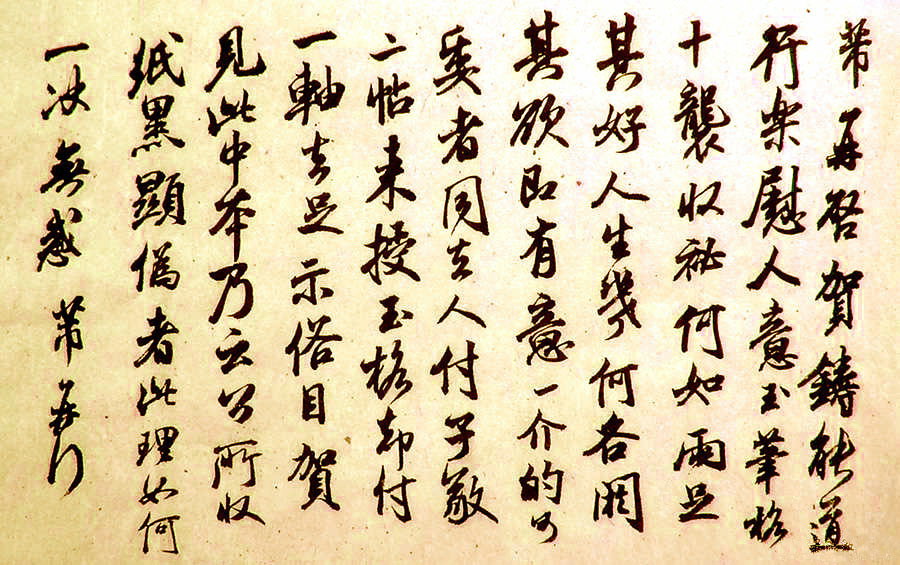 芾再啓賀鑄能道
行樂慰人意玉筆格
十襲收祕何如兩足
其好人生幾何各閼
其欲即有意一介的可
委者同去人付子敬
二帖來授玉格却付
一軸去足示俗目賀
見此中本乃云公所收
紙黑顯偽者此理如何
一决無惑芾再行